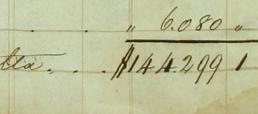 . . " 6.080 "
tta . . $144.299 1